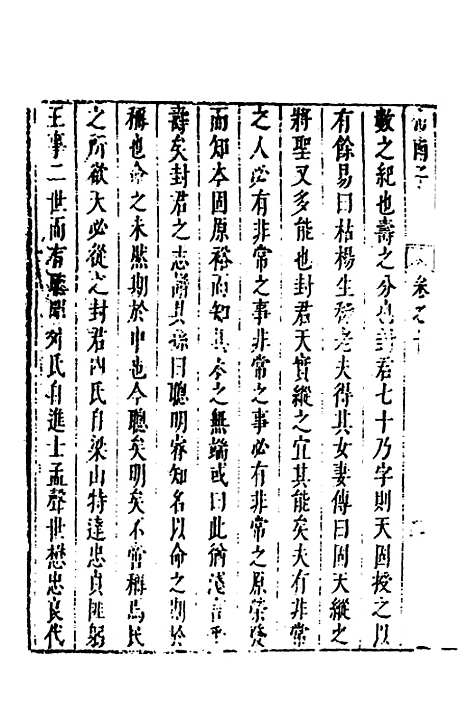 卷之十
數之紀也壽之分也封君七十乃字則天固授之以
有餘易曰枯楊生稊老夫得其女妻傳曰固天縱之
將聖又多能也封君天實縱之宜其能矣夫有非常
之人必有非常之事非常之事必有非常之原榮發
而知本固原裕而知其本之無端或曰此猶淺言乎
壽矣封君之志諸其孫曰聰明睿知名以命之期於
稱也命之未熈期於中也今聰矣明矣不啻稱焉民
之所欲天必從之封君內氏自梁山特達忠貞匪躬
王事二世而有氏自進士孟聲世懋忠良代